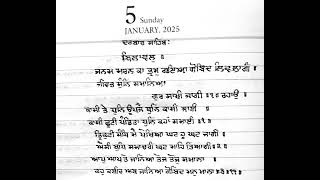 5 Sunday
JANUARY, 2025
ਦਰਬਾਰ ਸਾਹਿਬ:
ਬਿਲਾਵਲੁ ॥
ਜਨਮ ਮਰਨ ਕਾ ਭ੍ਰਮੁ ਗਇਆ ਗੋਬਿੰਦ ਲਿਵ ਲਾਗੀ ॥
ਜੀਵਤ ਸੁੰਨਿ ਸਮਾਨਿਆ
ਗੁਰ ਸਾਖੀ ਜਾਗੀ ॥੧॥ ਰਹਾਉ ॥
ਕਾਸੀ ਤੇ ਧੁਨਿ ਊਪਜੈ ਧੁਨਿ ਕਾਸੀ ਜਾਈ ॥
ਕਾਸੀ ਫੂਟੀ ਪੰਡਿਤਾ ਧੁਨਿ ਕਹਾਂ ਸਮਾਈ ॥੧॥
ਤ੍ਰਿਕੁਟੀ ਸੰਧਿ ਮੈ ਪੇਖਿਆ ਘਟ ਹੂ ਘਟ ਜਾਗੀ
ਐਸੀ ਬੁਧਿ ਸਮਾਚਰੀ ਘਟ ਮਾਹਿ ਤਿਆਗੀ ॥੨॥
ਆਪੁ ਆਪ ਤੇ ਜਾਨਿਆ ਤੇਜ ਤੇਜੁ ਸਮਾਨਾ ॥
ਕਹੁ ਕਬੀਰ ਅਬ ਜਾਨਿਆ ਗੋਬਿਦ ਮਨੁ ਮਾਨਾ ॥੩॥੧੧॥